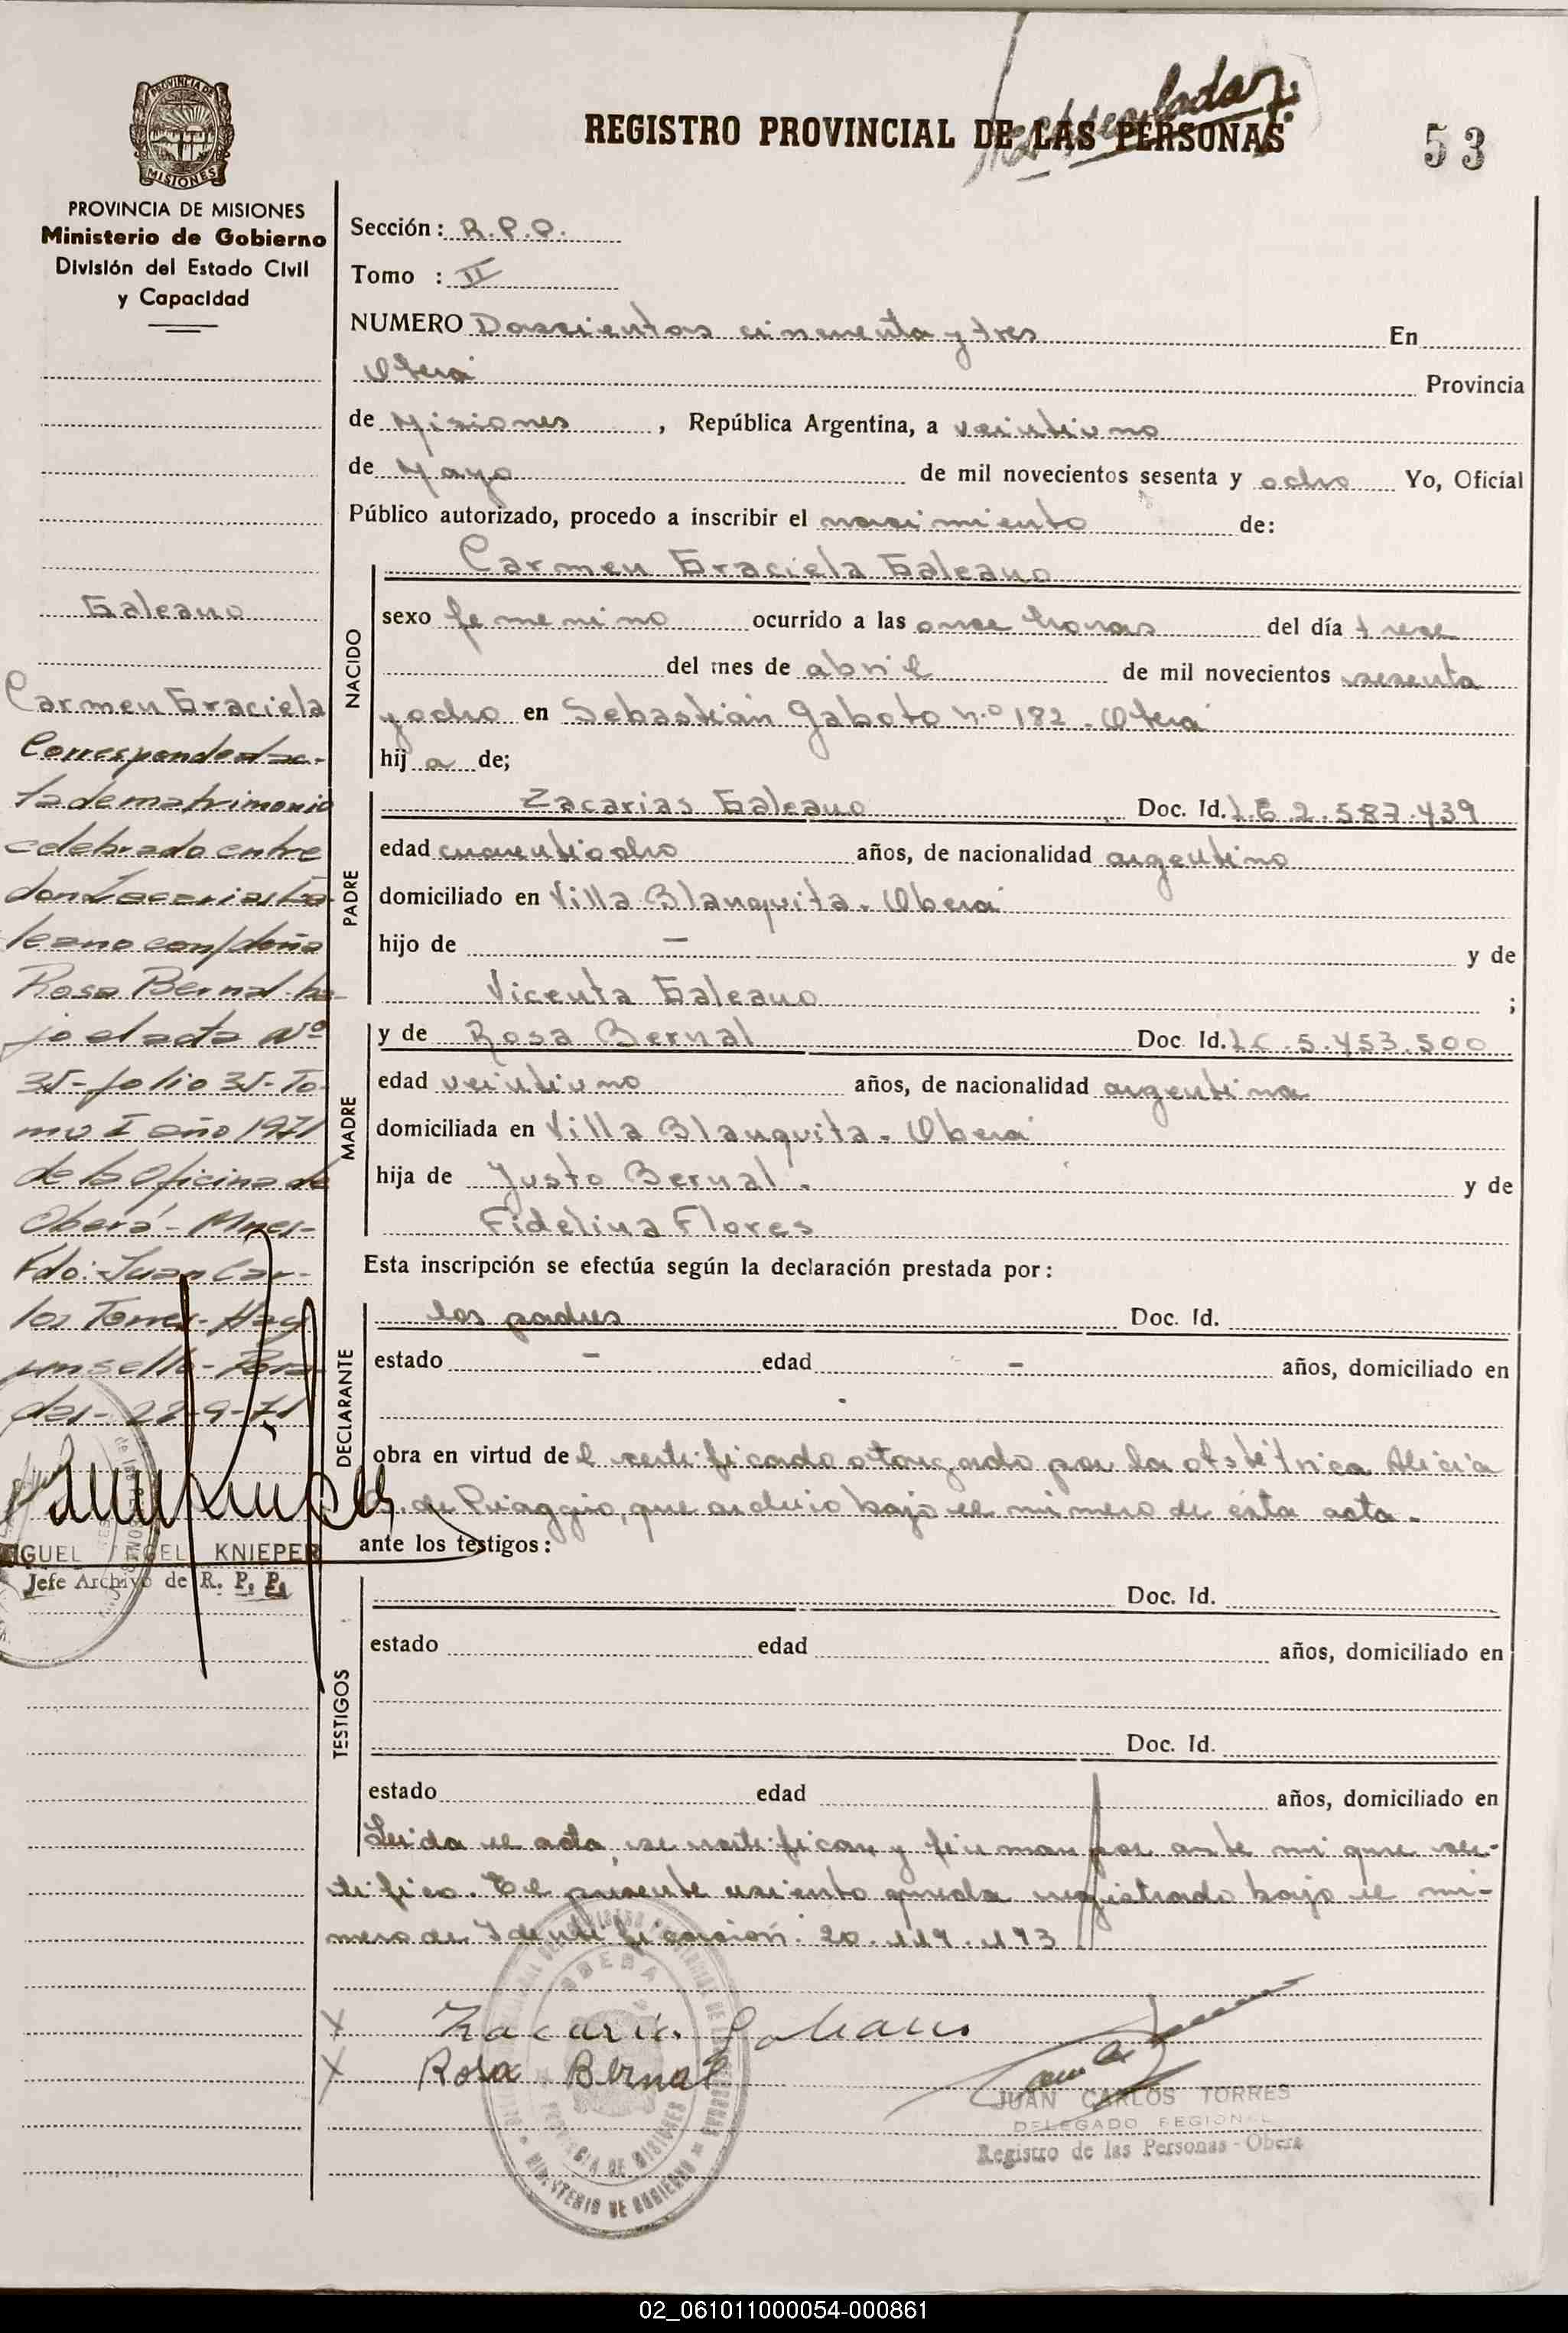 REGISTRO PROVINCIAL DE LAS PERSONAS
53
PROVINCIA DE
MISIONES
PROVINCIA DE MISIONES
Ministerio de Gobierno
División del Estado Civil
y Capacidad
Galeano
Carmen Graciela
Corresponde al ac-
ta de matrimonio
celebrado entre
don Zacarias Ga-
leano con doña
Rosa Bernal ba-
jo el acta Nº
35- folio 35- To-
mo I año 1971
de la Oficina de
Oberá- Mnes-
Fdo: Juan Car-
los Torres- Hay
un sello- Posa-
das- 28-9-71
GUEL ANGEL KNIEPER
Jefe Archivo de R. P. P.
Sección: R.P.O.
Tomo : II
NUMERO Doscientos cincuenta y tres En
Oberá Provincia
de Misiones , República Argentina, a veintiuno
de Mayo de mil novecientos sesenta y ocho Yo, Oficial
Público autorizado, procedo a inscribir el nacimiento de:
NACIDO
Carmen Graciela Galeano
sexo femenino ocurrido a las once horas del día trece
del mes de abril de mil novecientos sesenta
y ocho en Sebastián Gaboto n.º 182 - Oberá
hij a de;
PADRE
Zacarias Galeano Doc. Id. L.E 2.587.439
edad cuarentiocho años, de nacionalidad argentino
domiciliado en Villa Blanquita - Oberá
hijo de — y de
Vicenta Galeano ;
MADRE
y de Rosa Bernal Doc. Id. L.C. 5.453.500
edad veintiuno años, de nacionalidad argentina
domiciliada en Villa Blanquita - Oberá
hija de Justo Bernal . y de
Fidelina Flores
Esta inscripción se efectúa según la declaración prestada por:
DECLARANTE
los padres Doc. Id.
estado - edad - años, domiciliado en
obra en virtud de l certificado otorgado por la obstétrica Alicia
de Priaggio, que archivo bajo el número de ésta acta.
ante los testigos:
TESTIGOS
Doc. Id.
estado edad años, domiciliado en
Doc. Id.
estado edad años, domiciliado en
Leída el acta, se ratifican y firman por ante mi que cer-
tifico. El presente asiento queda registrado bajo el nú-
mero de Identificación: 20.119.193
X Zacarias Galeano
X Rosa Bernal
OBERA
PROVINCIA DE MISIONES
MINISTERIO DE GOBIERNO
JUAN CARLOS TORRES
DELEGADO REGIONAL
Registro de las Personas - Oberá
02_061011000054-000861